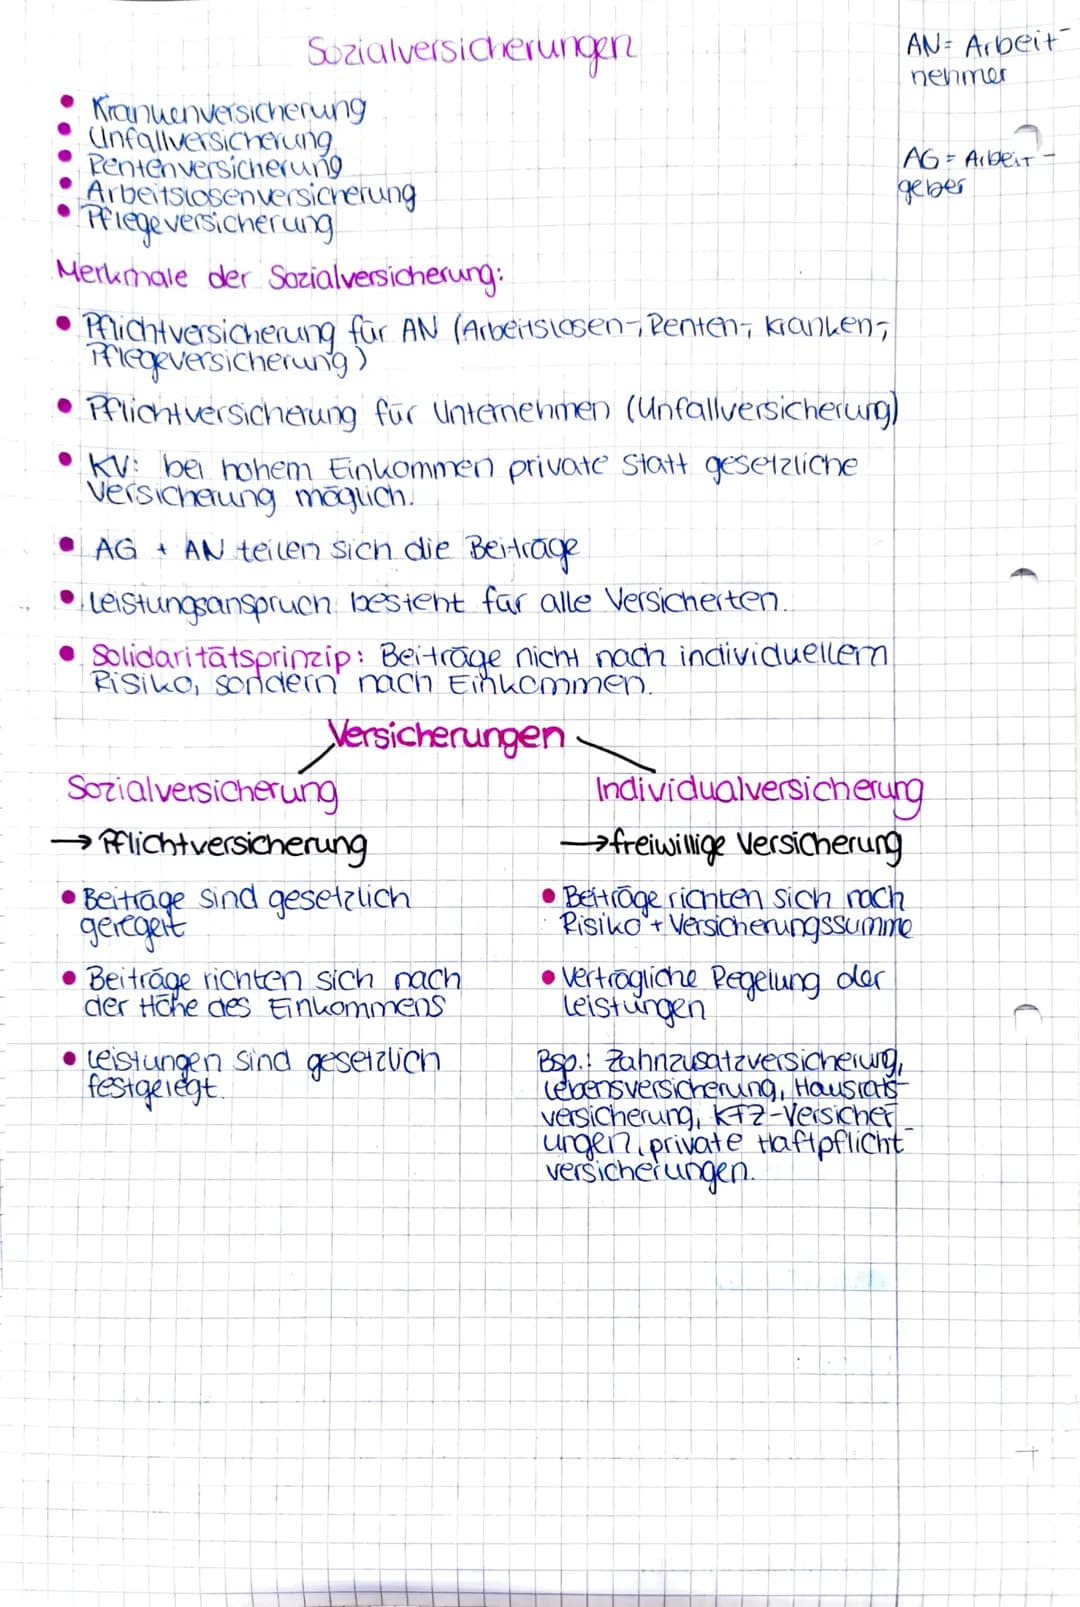 Sozialversicherungen
AN= Arbeit-
nehmer
AG = Arbeit-
geber
• Krankenversicherung
• Unfallversicherung
• Rentenversicherung
• Arbeitslosenversicherung
• Pflegeversicherung
Merkmale der Sozialversicherung:
• Pflichtversicherung für AN (Arbeitslosen-, Renten-, Kranken-,
Pflegeversicherung)
• Pflichtversicherung für Unternehmen (Unfallversicherung)
• KV: bei hohem Einkommen private statt gesetzliche
Versicherung möglich.
• AG + AN teilen sich die Beiträge
• Leistungsanspruch besteht für alle Versicherten.
• Solidaritätsprinzip: Beiträge nicht nach individuellem
Risiko, sondern nach Einkommen.
Versicherungen
Sozialversicherung
→ Pflichtversicherung
• Beiträge sind gesetzlich
geregelt
• Beiträge richten sich nach
der Höhe des Einkommens
• Leistungen sind gesetzlich
festgelegt.
Individualversicherung
→ freiwillige Versicherung
• Beiträge richten sich nach
Risiko + Versicherungssumme
• Verträgliche Regelung der
Leistungen
Bsp.: Zahnzusatzversicherung,
Lebensversicherung, Hausrats-
versicherung, KFZ-Versicher-
ungen, private Haftpflicht-
versicherungen.